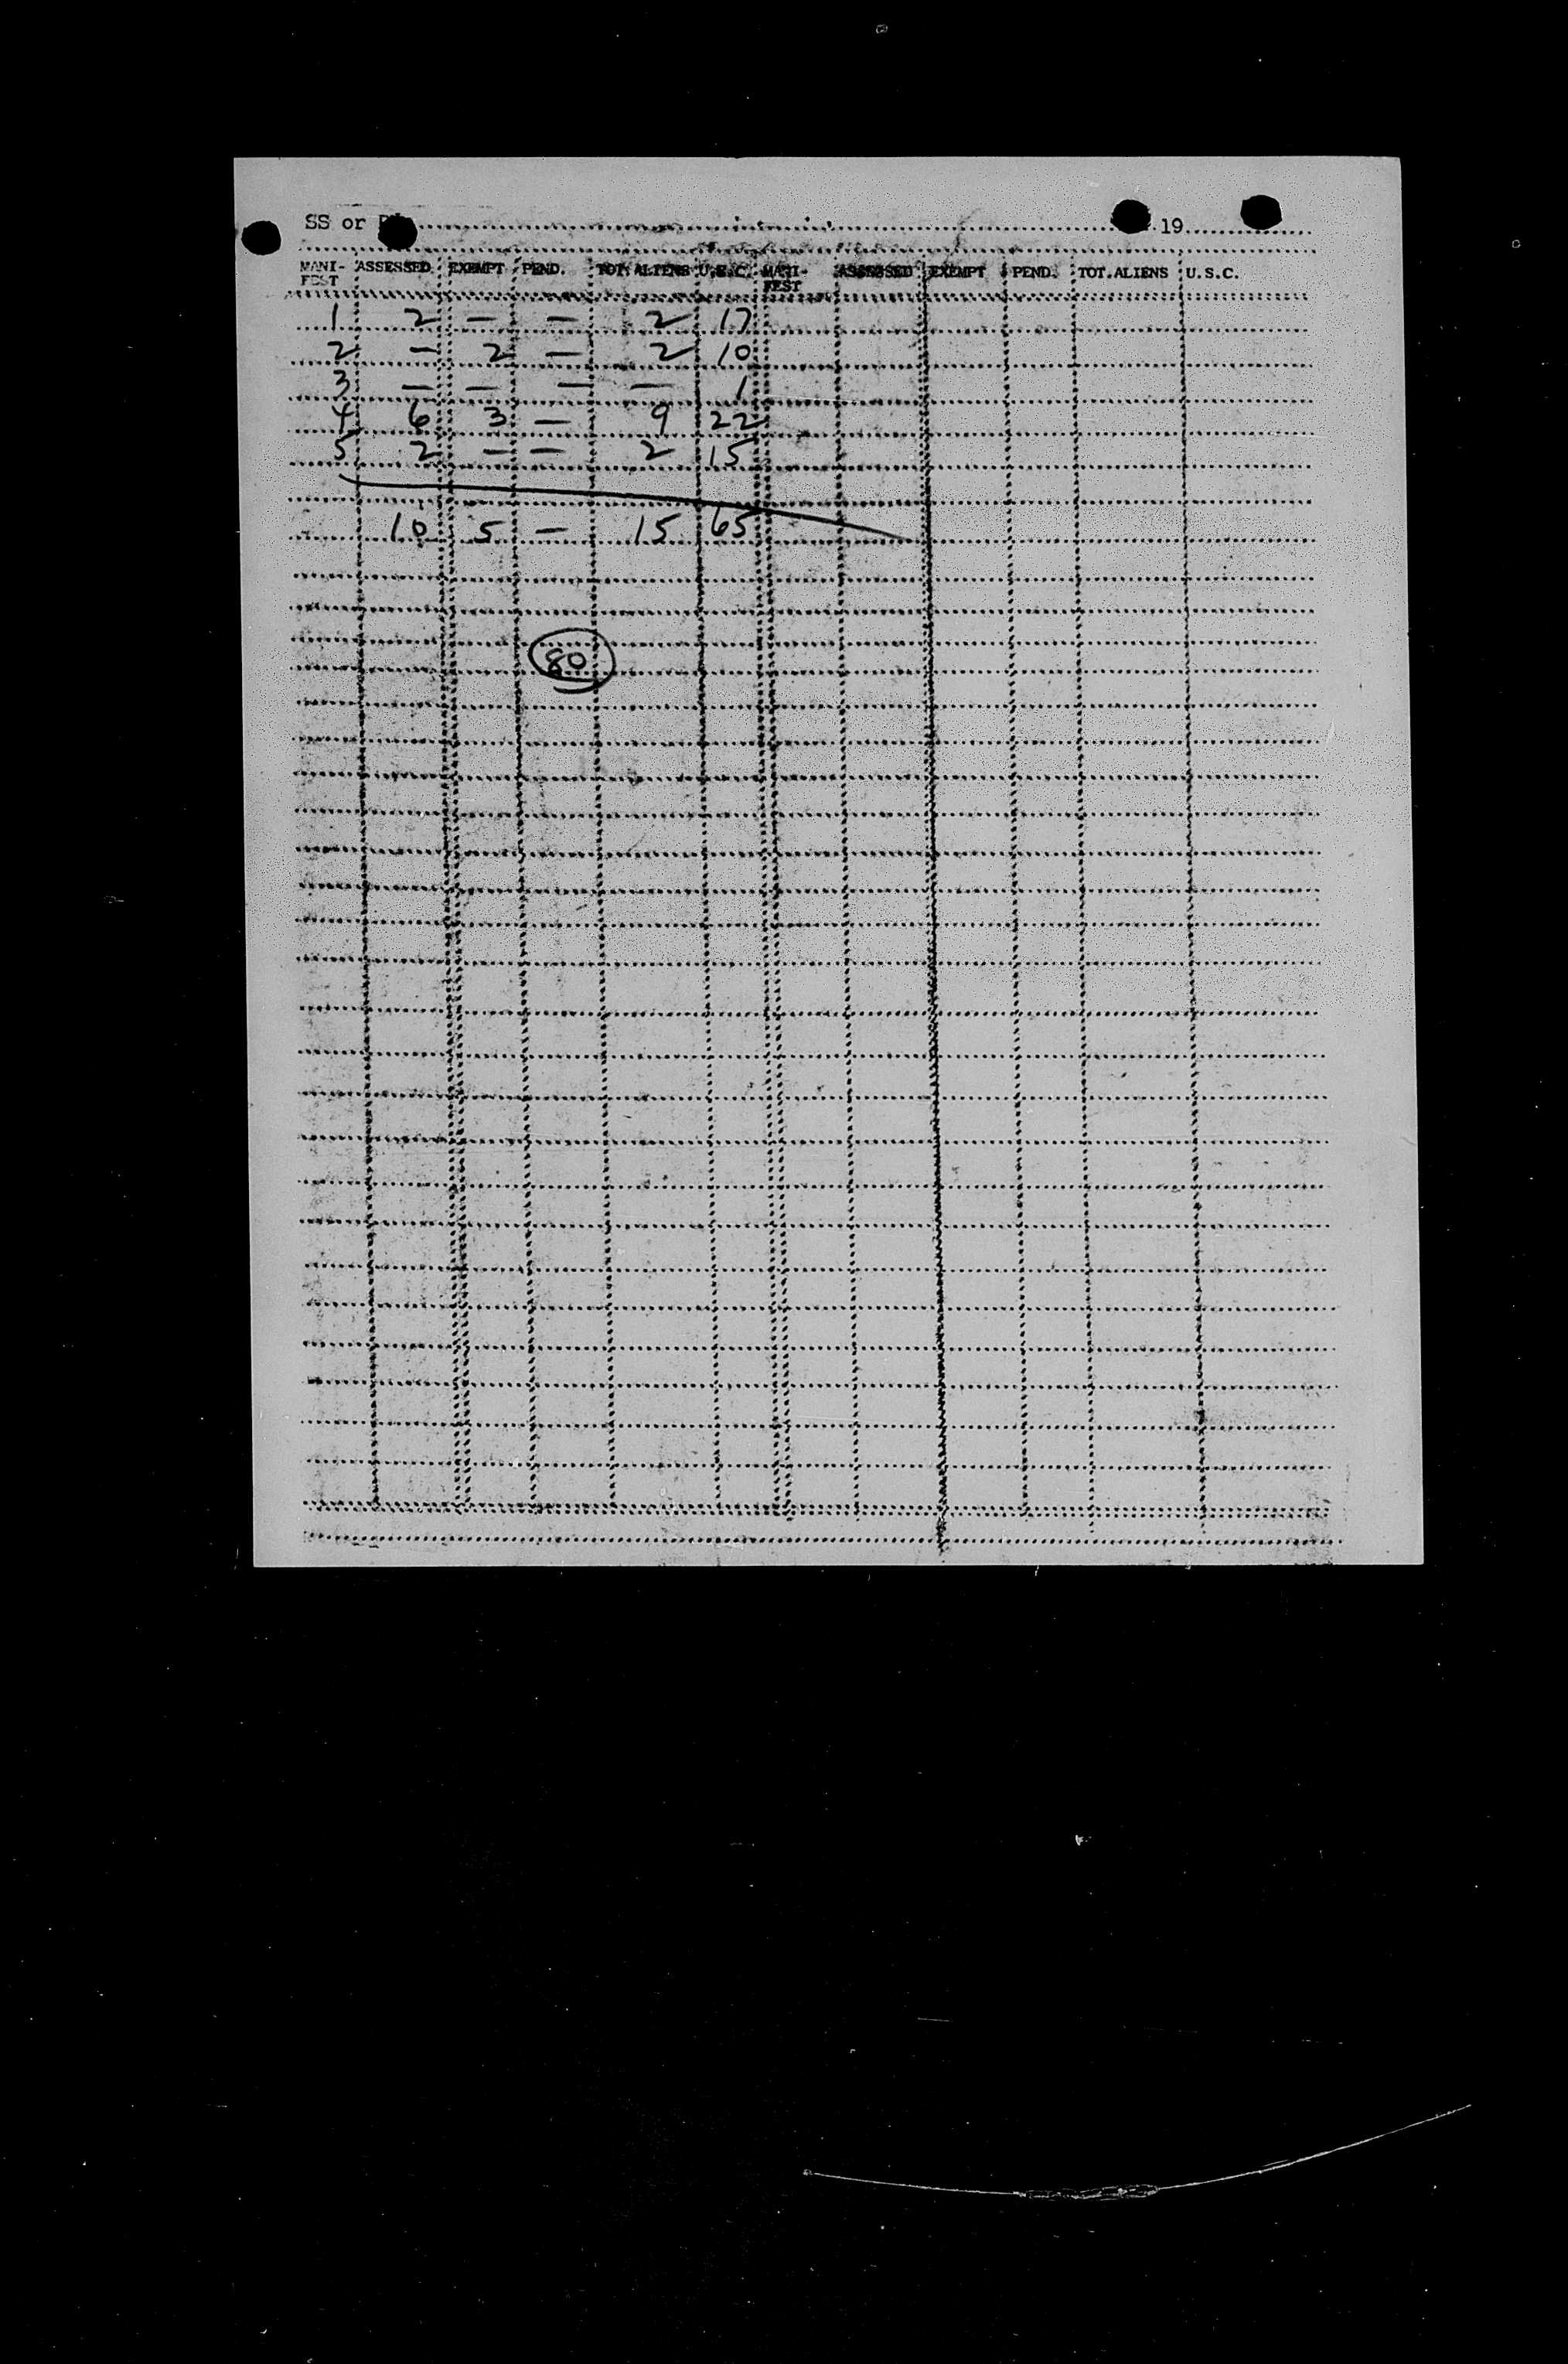 SS or 19
MANI- ASSESSED EXEMPT PEND. TOT. ALIENS U.S.C. MANI- ASSESSED EXEMPT PEND. TOT.ALIENS U.S.C.
FEST FEST
1 2 — — 2 17
2 — 2 — 2 10
3 — — — — 1
4 6 3 — 9 22
5 2 — — 2 15
10 5 — 15 65
80